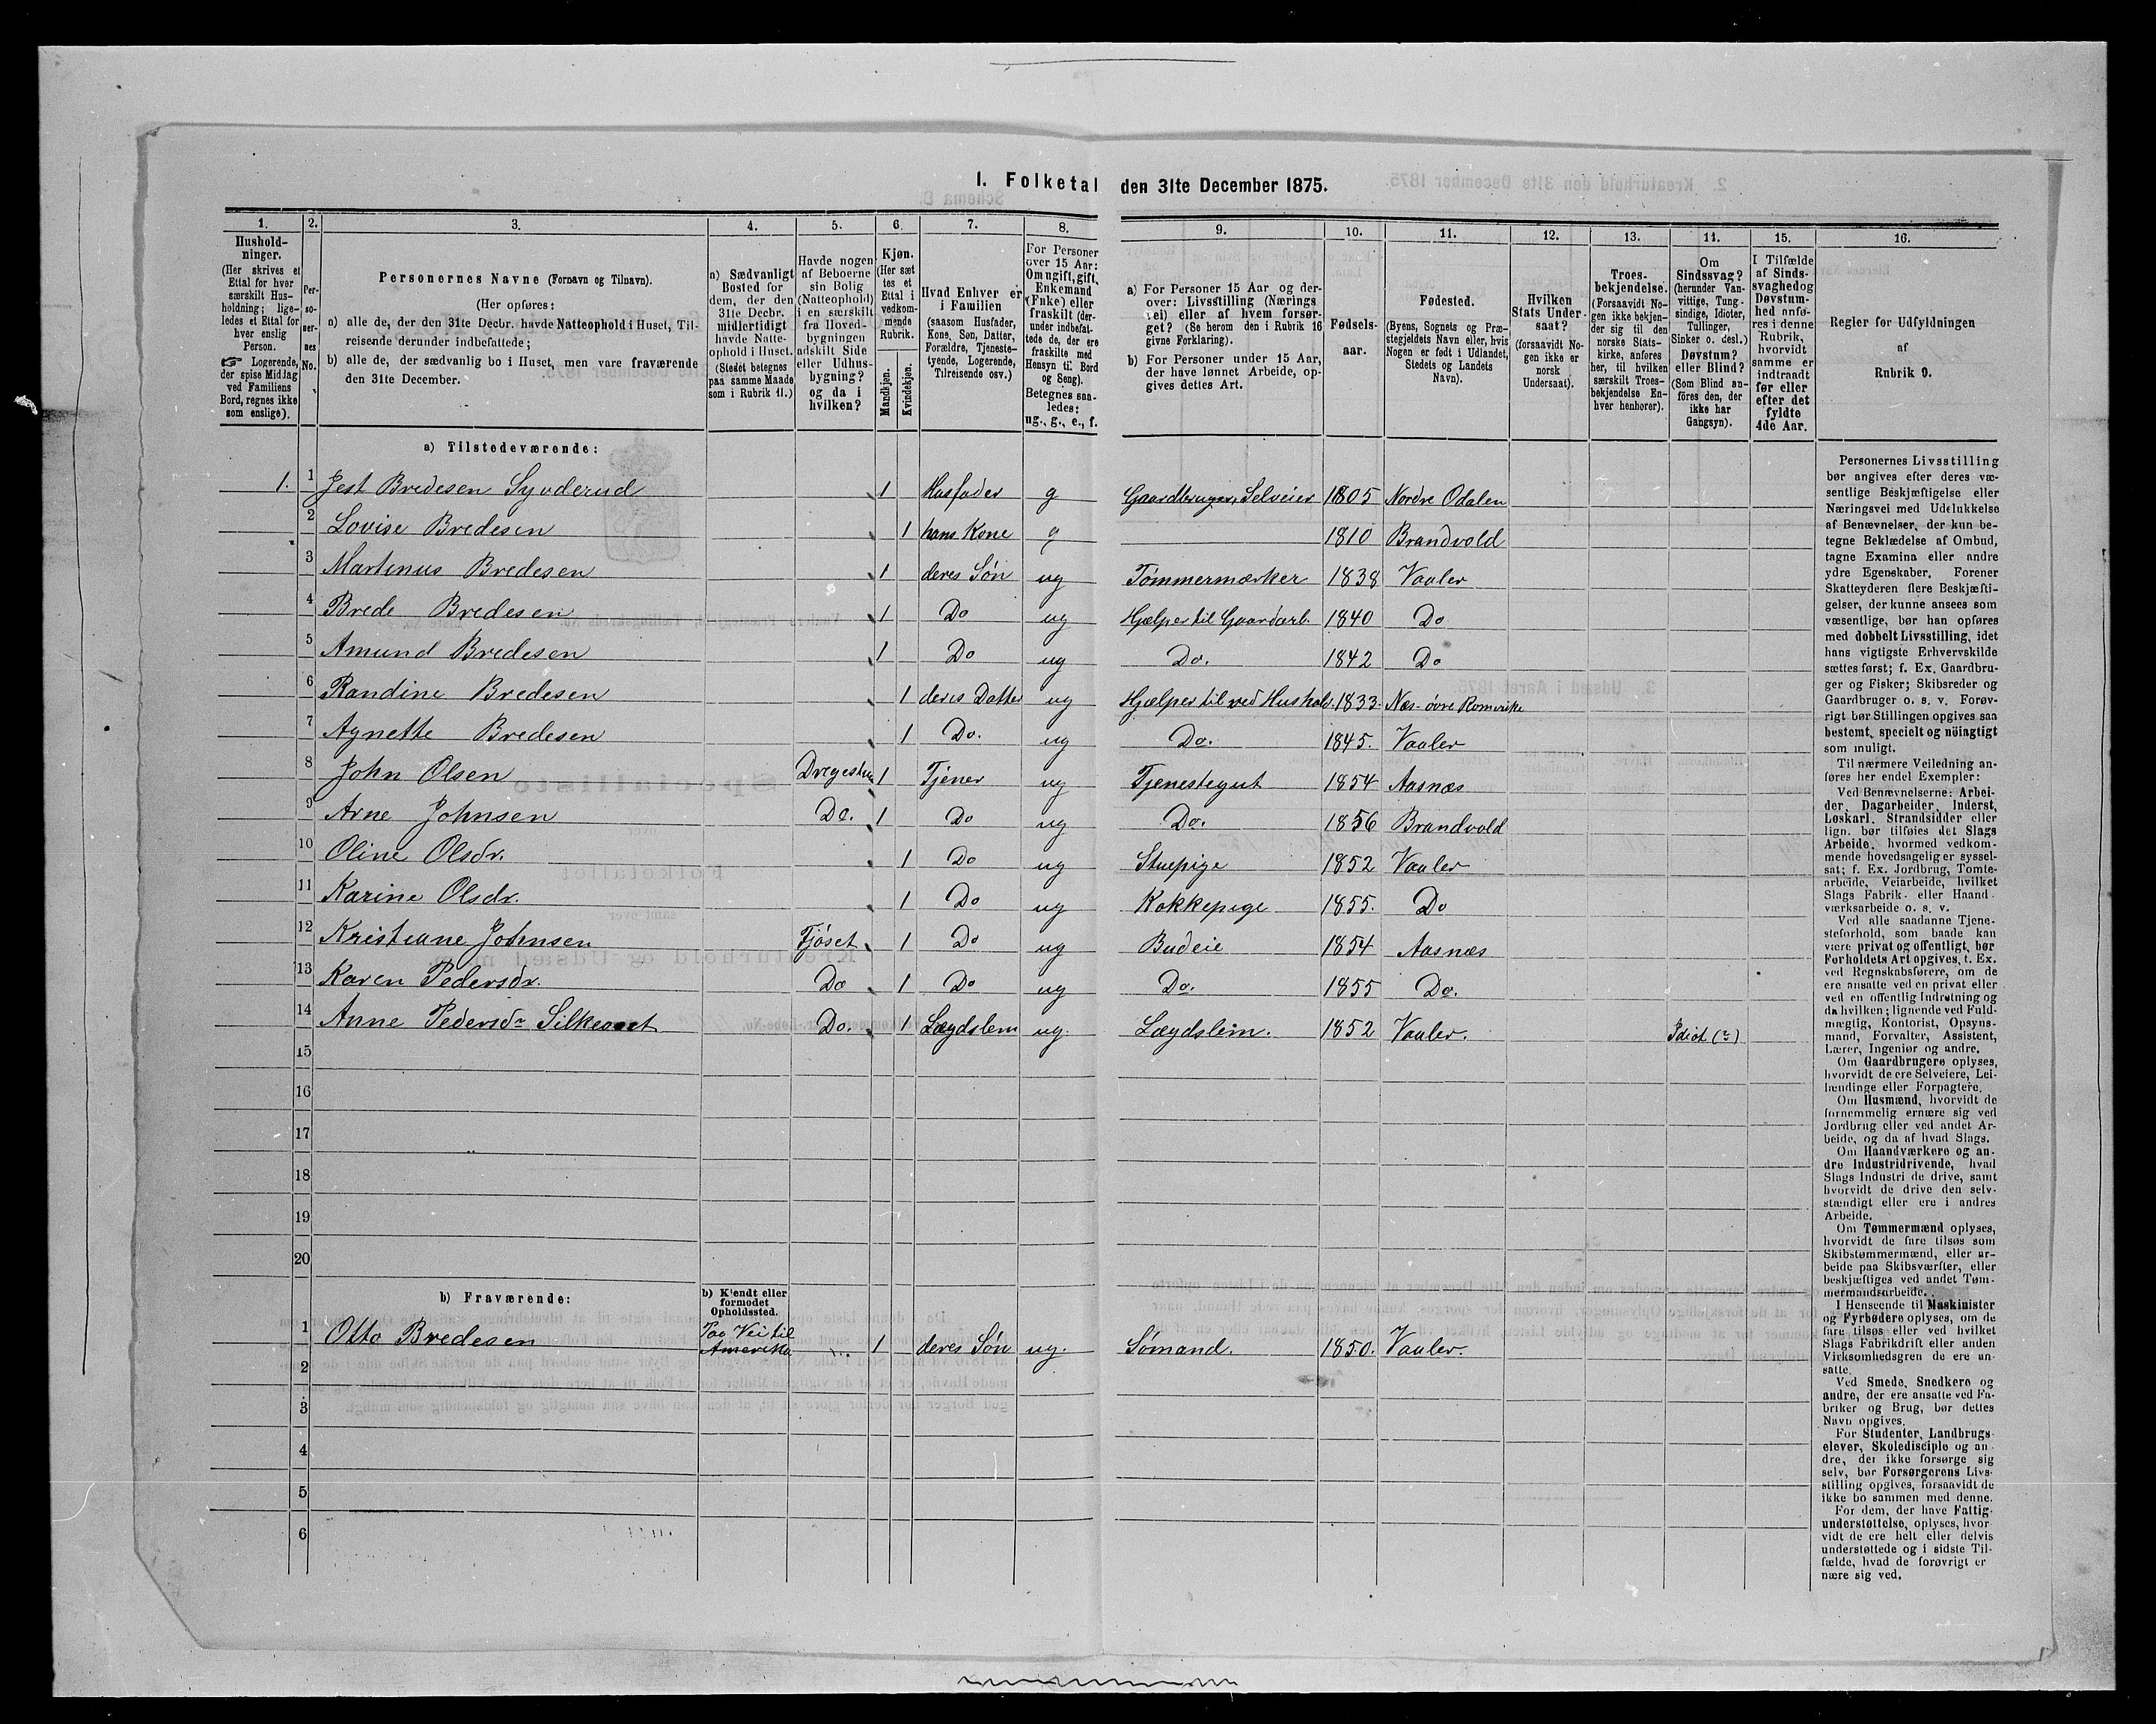 1. Folketal den 31te December 1875.
1.
2.
3.
4.
5.
6.
7.
8.
9.
10.
11.
12.
13.
14.
15.
16.
Hushold-
ninger.
(Her skrives et
Ettal for hver
særskilt Hus-
holdning; lige-
ledes et Ettal for
hver enslig
Person.
☞ Logerende,
der spise Middag
ved Familiens
Bord, regnes ikke
som enslige).
Per-
so-
ner-
nes
No.
Personernes Navne (Fornavn og Tilnavn).
(Her opføres:
a) alle de, der den 31te Decbr. havde Natteophold i Huset, Til-
reisende derunder indbefattede;
b) alle de, der sædvanlig bo i Huset, men vare fraværende
den 31te December.
a) Sædvanligt
Bosted for
dem, der den
31te Decbr.
midlertidigt
havde Natte-
ophold i Huset.
(Stedet betegnes
paa samme Maade
som i Rubrik 11.)
Havde nogen
af Beboerne
sin Bolig
(Natteophold)
i en særskilt
fra Hoved-
bygningen
adskilt Side
eller Udhus-
bygning?
og da i
hvilken?
Kjøn.
(Her sæt
tes et
Ettal i
vedkom-
mende
Rubrik.
Mandkjøn.
Kvindekjøn.
Hvad Enhver er
i Familien
(saasom Husfader,
Kone, Søn, Datter,
Forældre, Tjeneste-
tyende, Logerende,
Tilreisende osv.)
For Personer
over 15 Aar:
Om ugift, gift,
Enkemand
(Enke) eller
fraskilt (der-
under indbefat-
tede de, der ere
fraskilte med
Hensyn til Bord
og Seng).
Betegnes saa-
ledes:
ug., g., e., f.
a) For Personer 15 Aar og der-
over: Livsstilling (Nærings
vei) eller af hvem forsør-
get? (Se herom den i Rubrik 16
givne Forklaring).
b) For Personer under 15 Aar,
der have lønnet Arbeide, op-
gives dettes Art.
Fødsels-
aar.
Fødested.
(Byens, Sognets og Præ-
stegjeldets Navn eller, hvis
Nogen er født i Udlandet,
Stedets og Landets
Navn).
Hvilken
Stats Under-
saat?
(forsaavidt No-
gen ikke er
norsk
Undersaat).
Troes-
bekjendelse.
(Forsaavidt No-
gen ikke bekjen-
der sig til den
norske Stats-
kirke, anføres
her, til hvilken
særskilt Troes-
bekjendelse En-
hver henhører).
Om
Sindssvag?
(herunder Van-
vittige, Tung-
sindige, Idioter,
Tullinger,
Sinker o. desl.)
Døvstum?
eller Blind?
(Som Blind an-
føres den, der
ikke har
Gangsyn).
I Tilfælde
af Sinds-
svaghed og
Døvstum-
hed anfø-
res i denne
Rubrik,
hvorvidt
samme er
indtraadt
før eller
efter det
fyldte
4de Aar.
Regler for Udfyldningen
af
Rubrik 9.
a) Tilstedeværende:
1. 1 Jest Bredesen Syvderud 1 Husfader g Gaardbruger, Selveier 1805 Nordre Odalen
2 Lovise Bredesen 1 hans Kone g 1810 Brandvold
3 Martinus Bredesen 1 deres Søn ug Tømmermærker 1838 Vaaler
4 Brede Bredesen 1 Do ug Hjelper til Gaardarb. 1840 Do
5 Amund Bredesen 1 Do ug Do. 1842 Do
6 Randine Bredesen 1 deres Datter ug Hjælper til ved Hushold. 1833 Næs øvre Romerike
7 Agnette Bredesen 1 Do. ug Do. 1845. Vaaler
8 John Olsen 1 Tjener ug Tjenestegut 1854 Aasnæs
9 Arne Johnsen Do. 1 Do ug Do. 1856 Brandvold
10 Oline Olsdr. 1 Do ug Stuepige 1852 Vaaler
11 Karine Olsdr. 1 Do ug Kokkepige 1855. Do
12 Kristiane Johnsen Fjøset 1 Do ug Budeie 1854 Aasnæs
13 Karen Pedersdr. Do 1 Do ug Do. 1855 Do.
14 Anne Pedersdr Do. 1 Lægdslem ug. Lægdslem. 1852 Vaaler. Idiot
15
16
17
18
19
20
b) Fraværende:
b) Kjendt eller
formodet
Opholdssted.
1 Otto Bredesen Paa Vei til Amerika 1 deres Søn ug. Sømand. 1850. Vaaler.
2
3
4
5
6
Personernes Livsstilling
bør angives efter deres væ-
sentlige Beskjæftigelse eller
Næringsvei med Udelukkelse
af Benævnelser, der kun be-
tegne Beklædelse af Ombud,
tagne Examina eller andre
ydre Egenskaber. Forener
Skatteyderen flere Beskjæfti-
gelser, der kunne ansees som
væsentlige, bør han opføres
med dobbelt Livsstilling, idet
hans vigtigste Erhvervskilde
sættes først; f. Ex. Gaardbru-
ger og Fisker; Skibsreder og
Gaardbruger o. s. v. Forøv-
rigt bør Stillingen opgives saa
bestemt, specielt og nöiagtigt
som muligt.
Til nærmere Veiledning an-
føres her endel Exempler:
Ved Benævnelserne: Arbei-
der, Dagarbeider, Inderst,
Løskarl, Strandsidder eller
lign. bør tilføies det Slags
Arbeide, hvormed vedkom-
mende hovedsagelig er syssel-
sat; f. Ex. Jordbrug, Tomte-
arbeide, Veiarbeide, hvilket
Slags Fabrik- eller Haand-
værksarbeide o. s. v.
Ved alle saadanne Tjene-
steforhold, som baade kan
være privat og offentligt, bør
Forholdets Art opgives, t. Ex.
ved Regnskabsførere, om de
ere ansatte ved en privat eller
ved en offentlig Indretning og
da hvilken; lignende ved Fuld-
mægtig, Kontorist, Opsyns-
mand, Forvalter, Assistent,
Lærer, Ingeniør og andre.
Om Gaardbrugere oplyses,
hvorvidt de ere Selveiere, Lei-
lændinge eller Forpagtere.
Om Husmænd, hvorvidt de
fornemmelig ernære sig ved
Jordbrug eller ved andet Ar-
beide, og da af hvad Slags.
Om Haandværkere og an-
dre Industridrivende, hvad
Slags Industri de drive, samt
hvorvidt de drive den selv-
stændigt eller ere i andres
Arbeide.
Om Tømmermænd oplyses,
hvorvidt de fare tilsøs som
Skibstømmermænd, eller ar-
beide paa Skibsværfter, eller
beskjæftiges ved andet Tøm-
mermandsarbeide.
I Henseende til Maskinister
og Fyrbødere oplyses, om de
fare tilsøs eller ved hvilket
Slags Fabrikdrift eller anden
Virksomhedsgren de ere an-
satte.
Ved Smede, Snedkere og
andre, der ere ansatte ved Fa-
briker og Brug, bør dettes
Navn opgives.
For Studenter, Landbrugs-
elever, Skoledisciple og an-
dre, der ikke forsørge sig
selv, bør Forsørgerens Livs-
stilling opgives, forsaavidt de
ikke bo sammen med denne.
For dem, der have Fattig-
understøttelse, oplyses, hvor-
vidt de ere helt eller delvis
understøttede og i sidste Til-
fælde, hvad de forøvrigt er
nære sig ved.